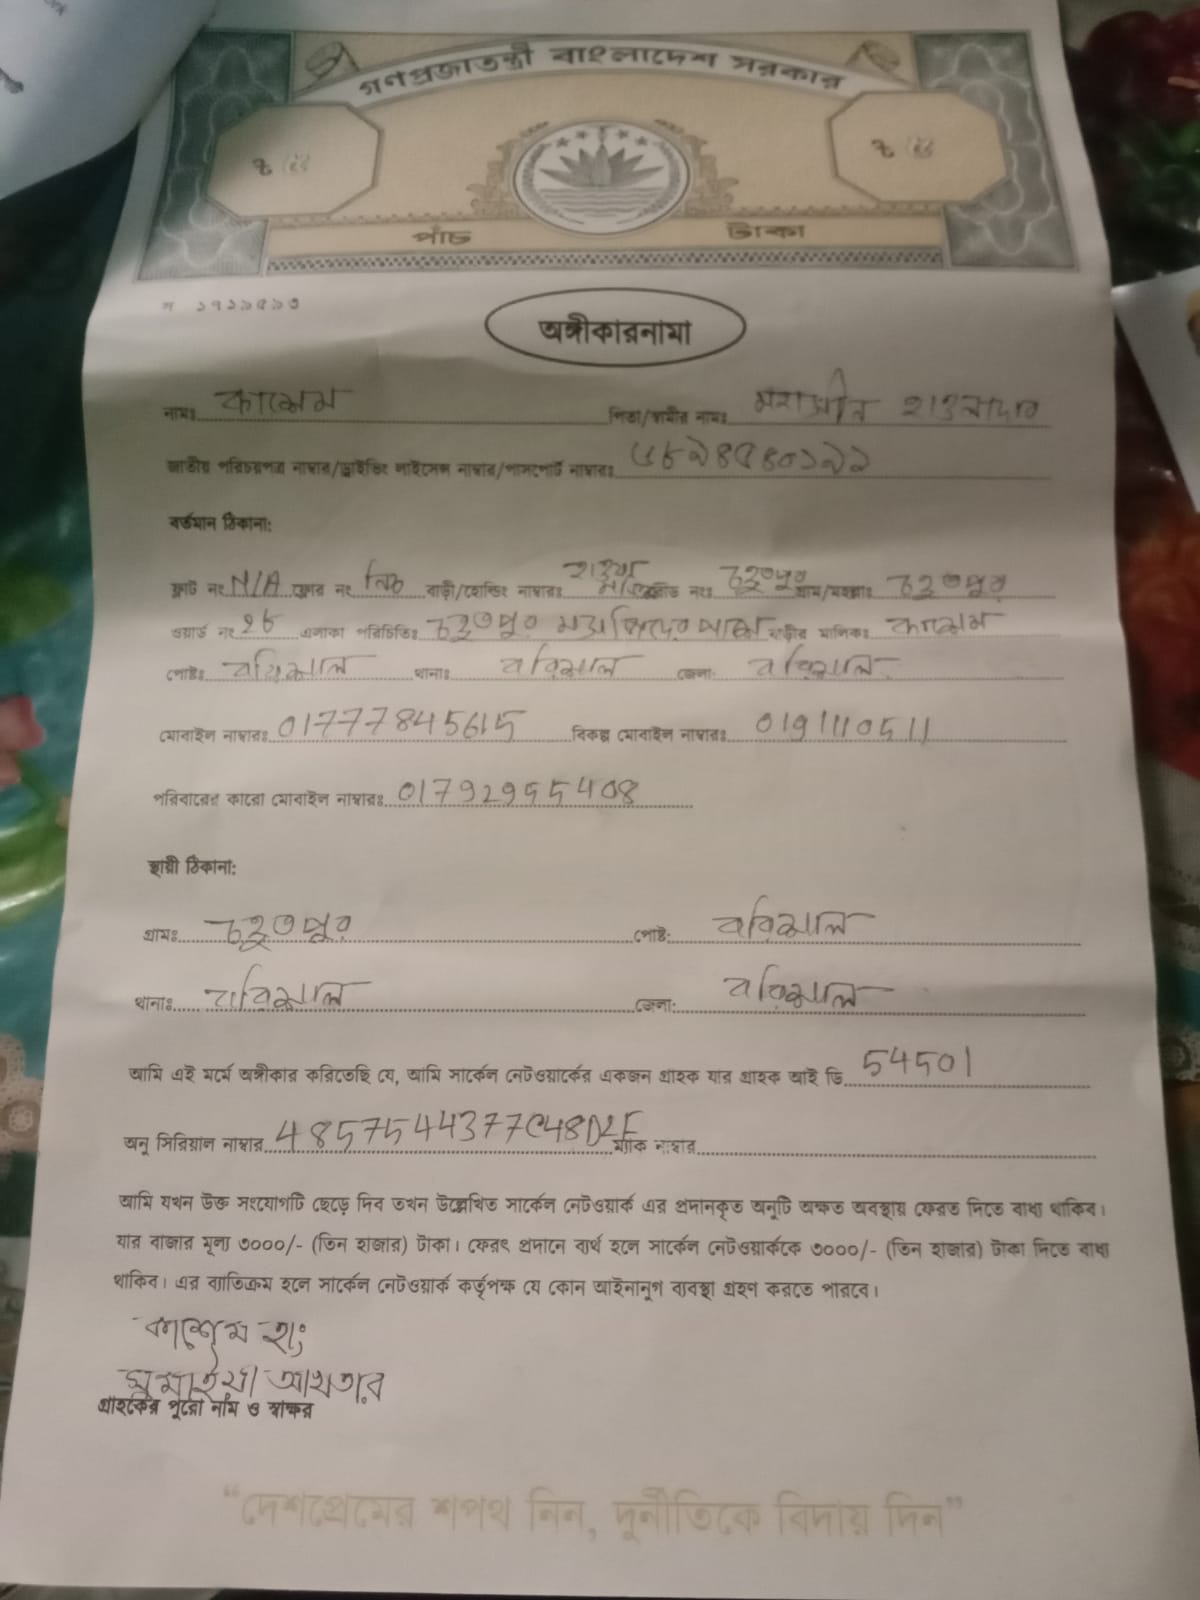 গণপ্রজাতন্ত্রী বাংলাদেশ সরকার
পাঁচ টাকা
অঙ্গীকারনামা
নামঃ কাশেম পিতা/স্বামীর নামঃ মহাসীন হাওলাদার
জাতীয় পরিচয়পত্র নাম্বার/ড্রাইভিং লাইসেন্স নাম্বার/পাসপোর্ট নাম্বারঃ
বর্তমান ঠিকানা:
ফ্লাট নং N/A ফ্লোর নং নিচ বাড়ী/হোল্ডিং নাম্বারঃ রোড নং: চহুতপুর গ্রাম/মহল্লাঃ চহুতপুর
ওয়ার্ড নং ২৮ এলাকা পরিচিতিঃ চহুতপুর মসজিদের পাশে বাড়ীর মালিকঃ কাশেম
পোষ্টঃ বরিশাল থানাঃ বরিশাল জেলা: বরিশাল
মোবাইল নাম্বারঃ 01777845615 বিকল্প মোবাইল নাম্বারঃ 01911110511
পরিবারের কারো মোবাইল নাম্বারঃ 01792955408
স্থায়ী ঠিকানা:
গ্রামঃ চহুতপুর পোষ্ট: বরিশাল
থানাঃ বরিশাল জেলা: বরিশাল
আমি এই মর্মে অঙ্গীকার করিতেছি যে, আমি সার্কেল নেটওয়ার্কের একজন গ্রাহক যার গ্রাহক আই ডি 54501
অনু সিরিয়াল নাম্বার 4857544377C48D2F ম্যাক নাম্বার
আমি যখন উক্ত সংযোগটি ছেড়ে দিব তখন উল্লেখিত সার্কেল নেটওয়ার্ক এর প্রদানকৃত অনুটি অক্ষত অবস্থায় ফেরত দিতে বাধ্য থাকিব।
যার বাজার মূল্য ৩০০০/- (তিন হাজার) টাকা। ফেরৎ প্রদানে ব্যর্থ হলে সার্কেল নেটওয়ার্ককে ৩০০০/- (তিন হাজার) টাকা দিতে বাধ্য
থাকিব। এর ব্যাতিক্রম হলে সার্কেল নেটওয়ার্ক কর্তৃপক্ষ যে কোন আইনানুগ ব্যবস্থা গ্রহণ করতে পারবে।
কাশেম হাং
সুমাইয়া আখতার
গ্রাহকের পুরো নাম ও স্বাক্ষর
“দেশপ্রেমের শপথ নিন, দুর্নীতিকে বিদায় দিন”